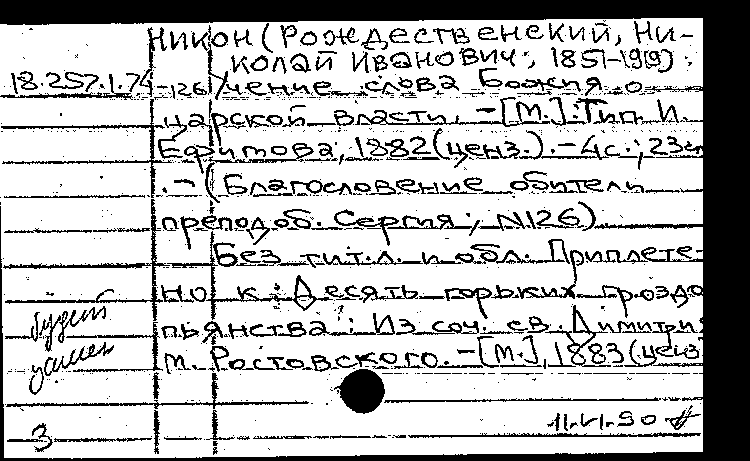 Никон (Рождественский, Ни-
колай Иванович; 1851-1919).
18.257.1.74-126 Учение слова Божия о
царской власти. - [М.]: Тип. И.
Ефимова, 1882 (ценз.). - 4с.; 23см
. - (Благословение обители
преподоб. Сергия; N126)
Без тит.л. и обл. Приплете-
но к: Десять горьких гроздо
пьянства: Из соч. св. Димитрия
м. Ростовского. - [М.], 1883 (ценз
11.VI.90
3